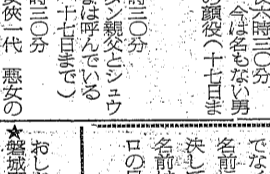 時三〇分
今は名もない男
の顔役（十七日ま
時三〇分
ン親父とシュウ
は呼んでいる
十七日まで）
時三〇分
女侠一代　悪女の
でなく
名前に
決して
名前は
ロの
おし
★磐城